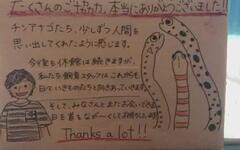 たくさんのご協力、本当にありがとうございました!!
チンアナゴたち、少しずつ人間を
思い出してくれたように感じます。
今後も休館は続きますが、
私たち飼育スタッフはこれからも
日々いきものたちと向きあっていきます。
そして、みなさんとまたお会いできる
日を首をながーくしてお待ちしております。
Thanks a lot!!